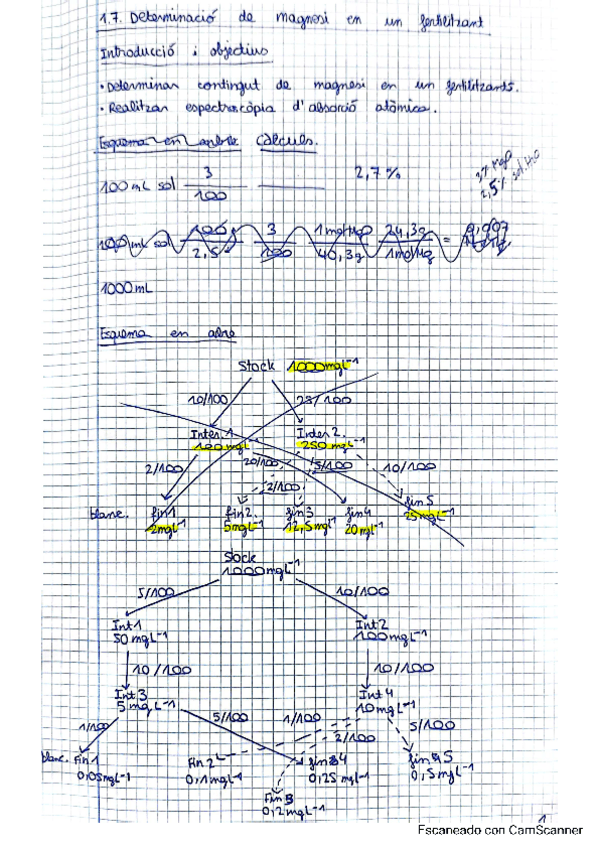 1.7. Determinació de magnesi en un fertilitzant
Introducció i objectius
• Determinar contingut de magnesi en un fertilitzants.
• Realitzar espectroscòpia d'absorció atòmica.
Esquema en arbre Càlculs.
3% MgO
2,5% sol. H2O
100 mL sol 3/100 2,7%
100 mL sol 100/2,5 3/100 1 mol MgO/40,3g 24,3g/1 mol Mg =
1000 mL
Esquema en arbre
Stock 1000 mgL⁻¹
10/100 25/100
Inter. 1 Inter 2.
100 mgL⁻¹ 250 mgL⁻¹
2/100 20/100 5/100 10/100
2/100
blanc. fin1 fin2. fin3 fin4 fin5
2mgL⁻¹ 5mgL⁻¹ 12,5mgL⁻¹ 20mgL⁻¹ 25mgL⁻¹
Stock
1000mgL⁻¹
5/100 10/100
Int1 Int2
50 mgL⁻¹ 100mgL⁻¹
10/100 10/100
Int3 Int4
5 mgL⁻¹ 10mgL⁻¹
1/100 5/100 1/100 2/100 5/100
blanc. Fin1 Fin2 fin4 fin5
0,05mgL⁻¹ 0,1mgL⁻¹ 0,25mgL⁻¹ 0,5mgL⁻¹
Fin3
0,2mgL⁻¹
1
Escaneado con CamScanner